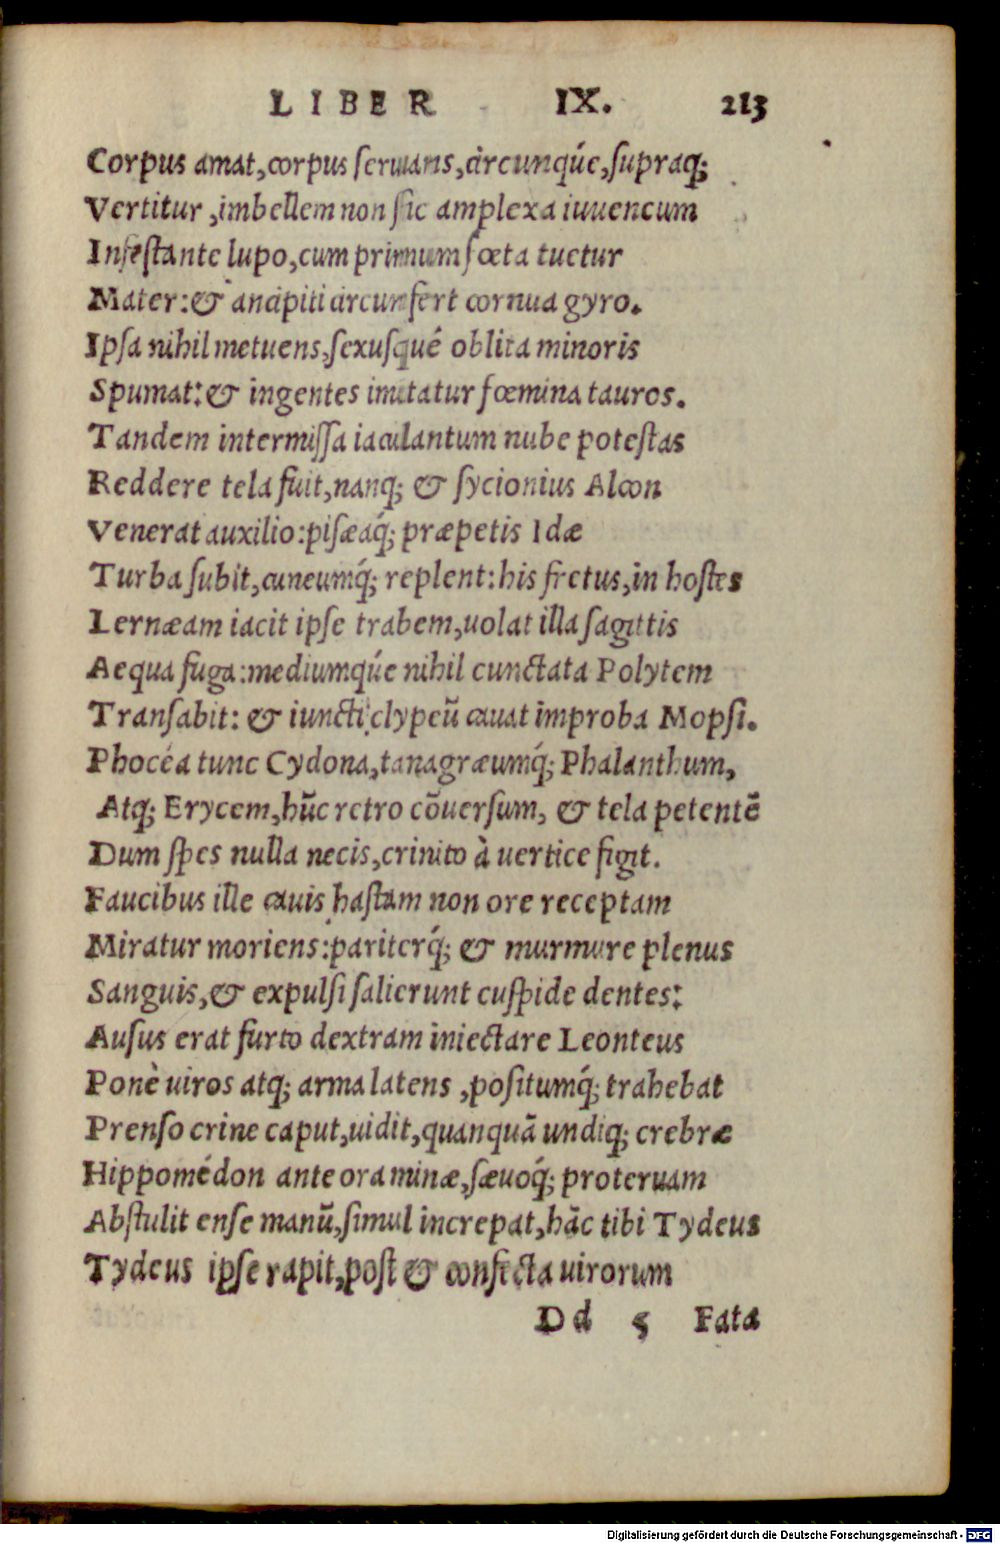 LIBER IX. 213
Corpus amat, corpus seruans, circunq́ue, supraq;
Vertitur, imbellem non sic amplexa iuuencum
Infestante lupo, cum primum fœta tuetur
Mater: & ancipiti circunfert cornua gyro.
Ipsa nihil metuens, sexusq́ue oblita minoris
Spumat: & ingentes imitatur fœmina tauros.
Tandem intermissa iaculantum nube potestas
Reddere tela fuit, nanq; & sycionius Alcon
Venerat auxilio: pisæaq́; præpetis Idæ
Turba subit, cuneumq́; replent: his fretus, in hostes
Lernæam iacit ipse trabem, uolat illa sagittis
Aequa fuga: mediumq́ue nihil cunctata Polytem
Transabit: & iuncti clypeū cauat improba Mopsi.
Phocéa tunc Cydona, tanagræumq́; Phalanthum,
Atq; Erycem, hūc retro cōuersum, & tela petentē
Dum spes nulla necis, crinito à uertice figit.
Faucibus ille cauis hastam non ore receptam
Miratur moriens: pariterq́; & murmure plenus
Sanguis, & expulsi salierunt cuspide dentes:
Ausus erat furto dextram iniectare Leonteus
Ponè uiros atq; arma latens, positumq́; trahebat
Prenso crine caput, uidit, quanquā undiq; crebræ
Hippomédon ante ora minæ, sæuoq́; proteruam
Abstulit ense manū, simul increpat, hāc tibi Tydeus
Tydeus ipse rapit, post & confecta uirorum
Dd 5 Fata
Digitalisierung gefördert durch die Deutsche Forschungsgemeinschaft - DFG